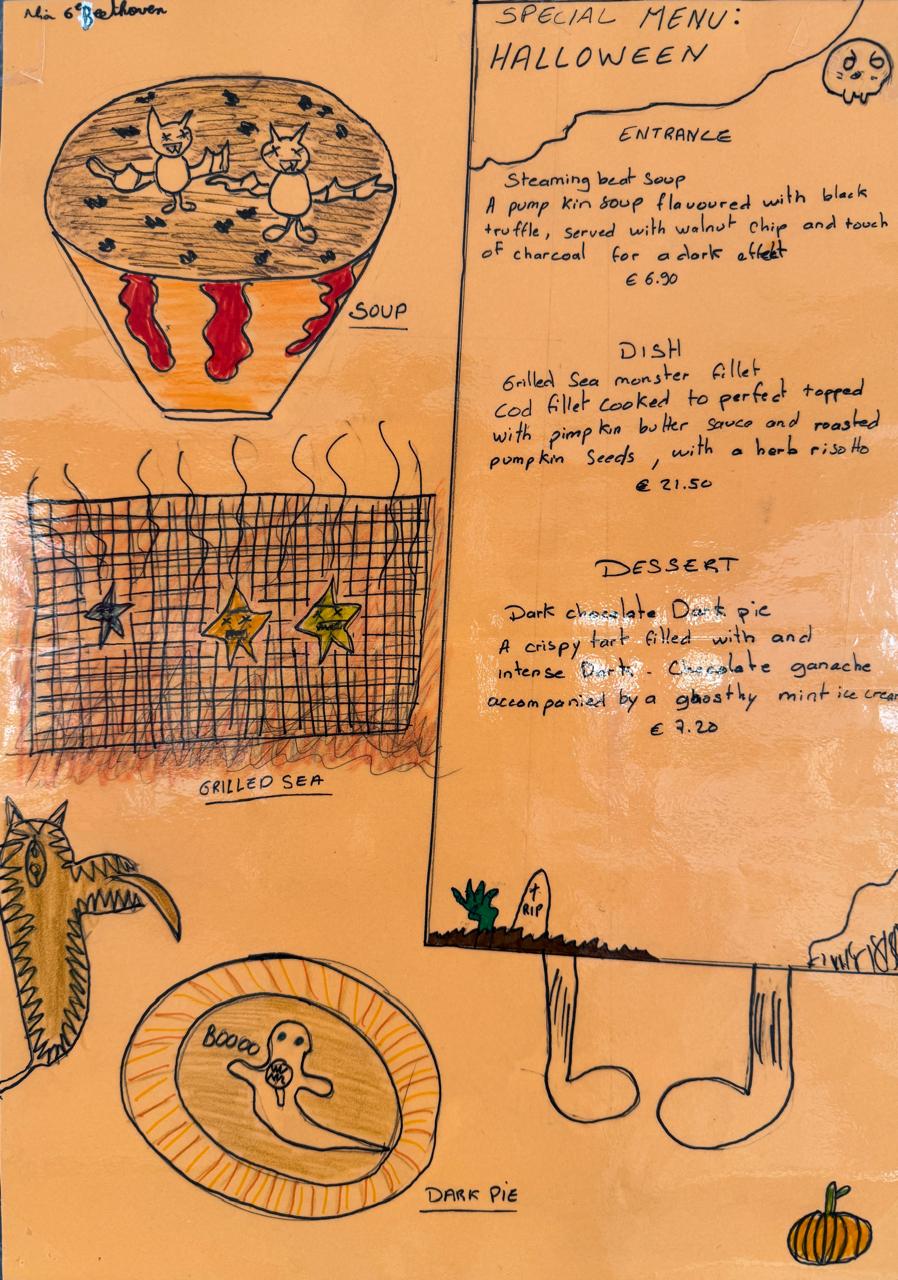 6e Beethoven
SPECIAL MENU:
HALLOWEEN
ENTRANCE
Steaming beat soup
A pump kin soup flavoured with black
truffle, served with walnut chip and touch
of charcoal for a dark effekt
€ 6.90
SOUP
DISH
Grilled Sea monster fillet
Cod fillet cooked to perfect topped
with pimpkin butter sauce and roasted
pumpkin Seeds , with a herb risotto
€ 21.50
GRILLED SEA
DESSERT
Dark chocolate Dark pie
A crispy tart filled with and
intense Dark - Chocolate ganache
accompanied by a ghosthy mint ice cream
€ 7.20
RIP
BOOOO
DARK PiE